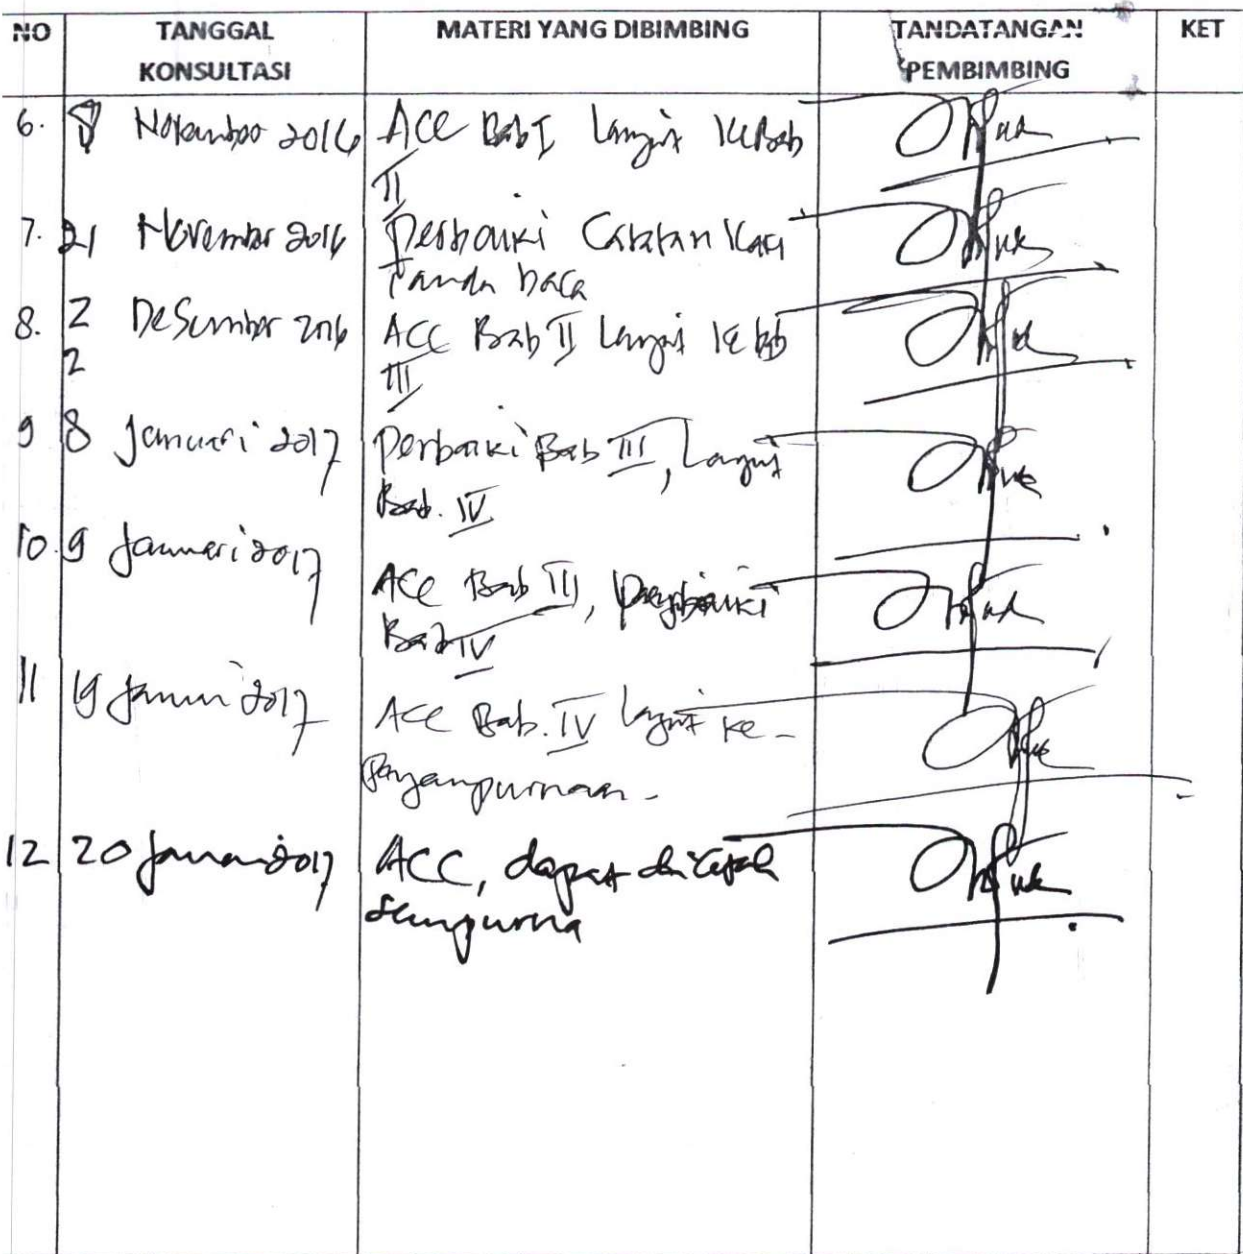 NO TANGGAL KONSULTASI MATERI YANG DIBIMBING TANDATANGAN PEMBIMBING KET
6. 8 November 2016 ACC Bab I Lanjut ke Bab
II
7. 21 November 2016 Perbaiki Catatan Kaki
Tanda baca
8. 2 Desember 2016 ACC Bab II Lanjut ke bab
2 III
9 8 Januari 2017 Perbaiki Bab III, Lanjut
Bab. IV
10. 9 Januari 2017
ACC Bab III, Perbaiki
Bab IV
11 19 Januari 2017 ACC Bab. IV lanjut ke -
Penyempurnaan -
12 20 Januari 2017 ACC, dapat dicetak
Sempurna